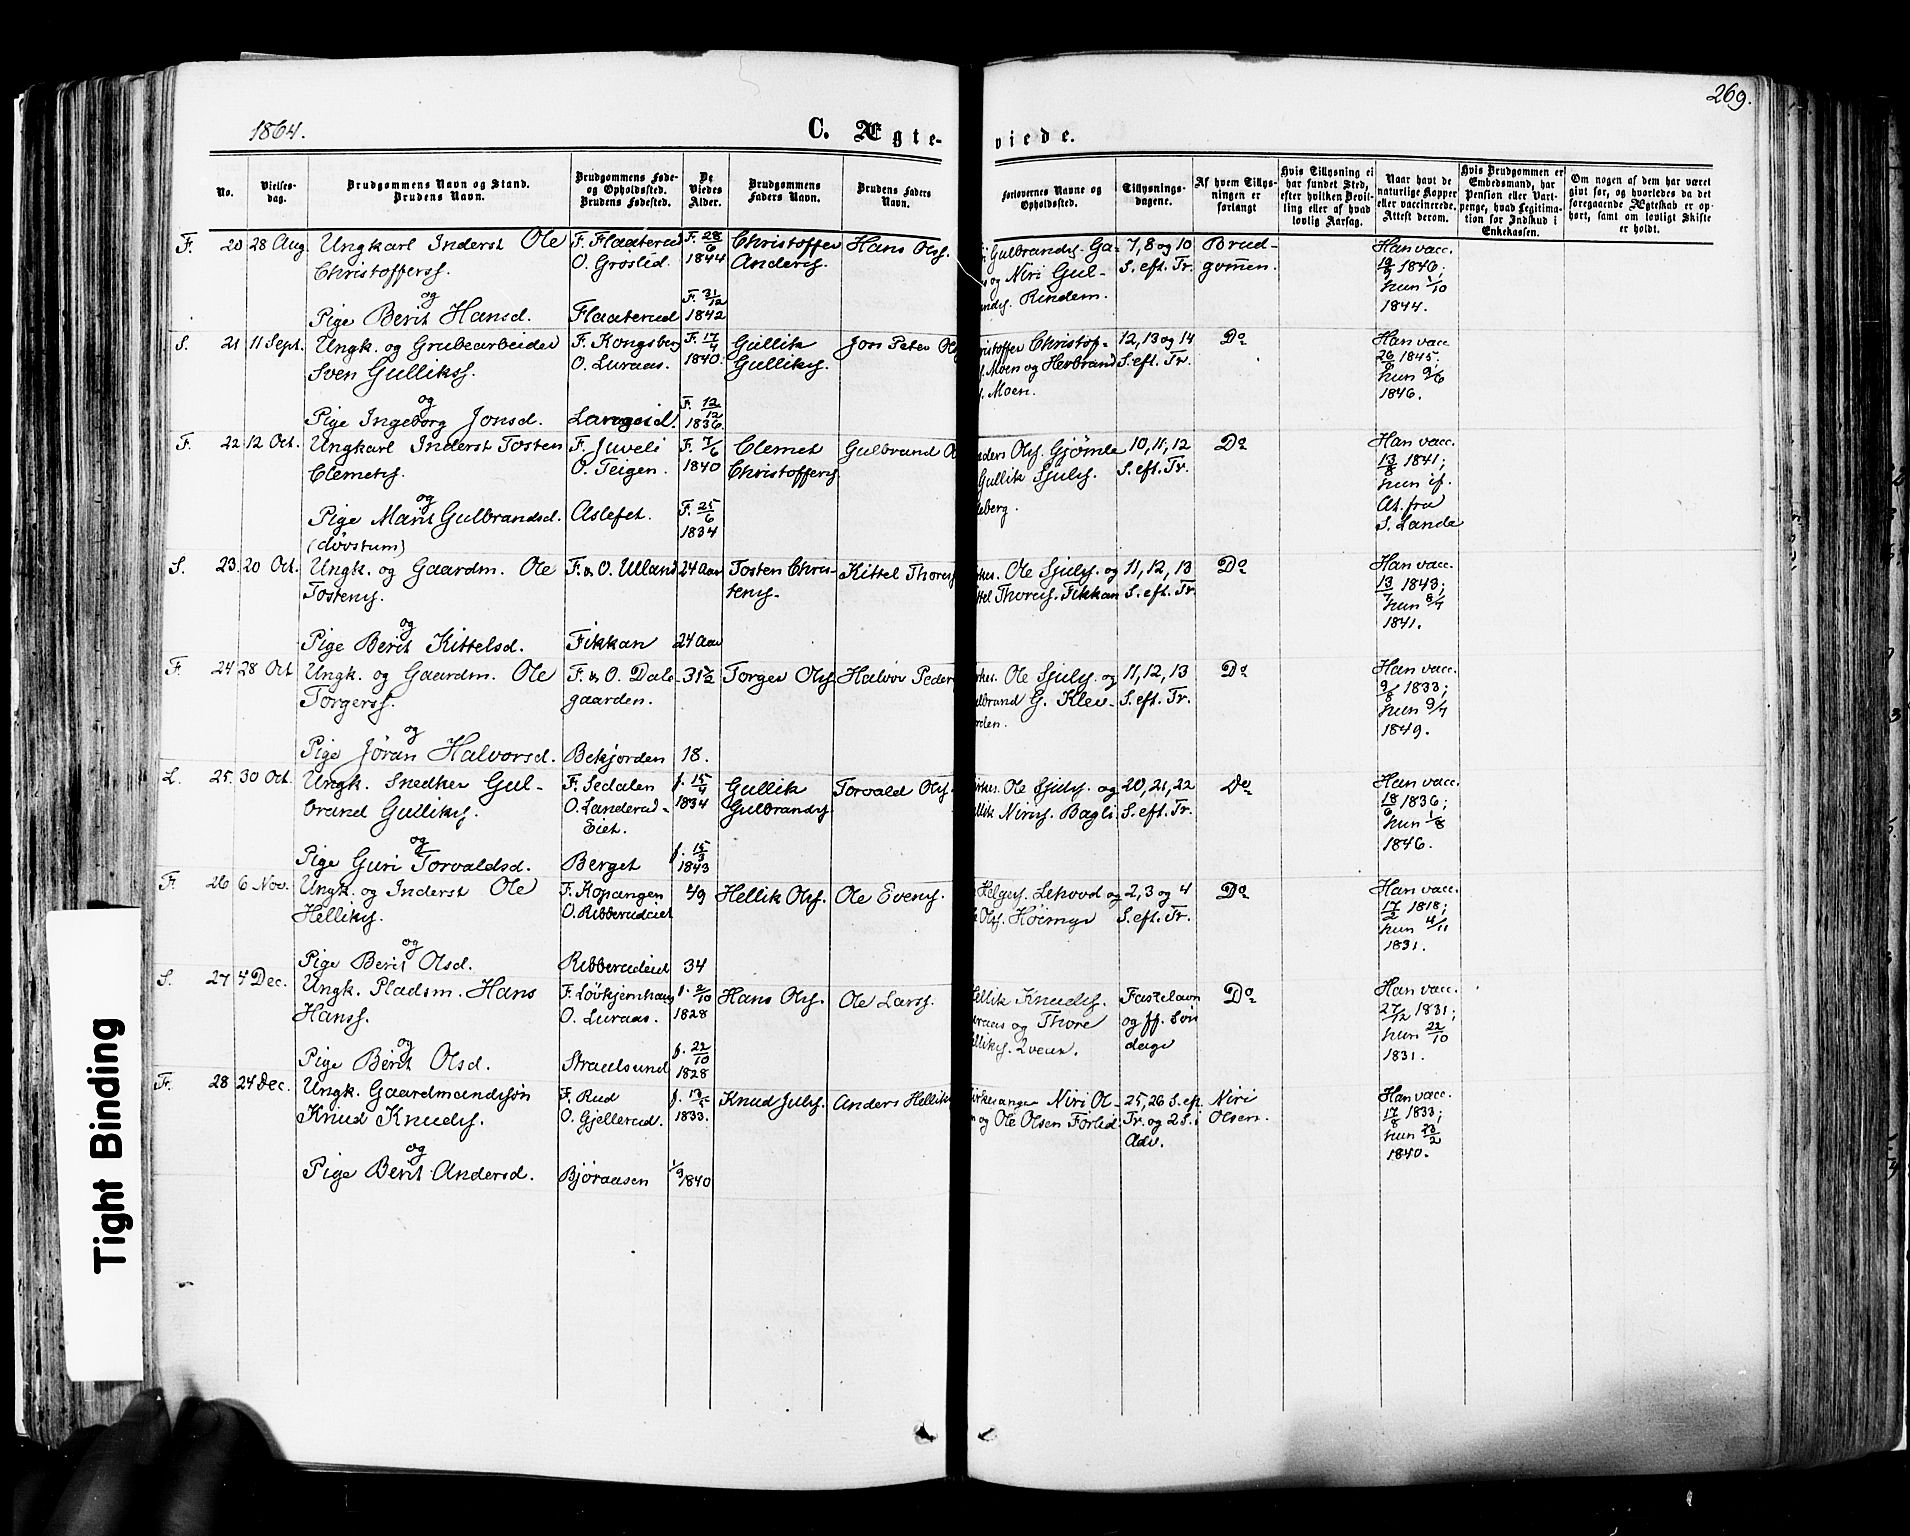 269.
1864.
C. Ægte-
viede.
No.
Vielses-
dag.
Brudgommens Navn og Stand.
Brudens Navn.
Brudgommens Føde-
og Opholdssted.
Brudens Fødested.
De
Viedes
Alder.
Brudgommens
Faders Navn.
Brudens Faders
Navn.
Forlovernes Navne og
Opholdssted.
Tillysnings-
dagene.
Af hvem Tillys-
ningen er
forlangt
Hvis Tillysning ei
har fundet Sted,
efter hvilken Bevil-
ling eller af hvad
lovlig Aarsag.
Naar havt de
naturlige Kopper
eller vaccinerede.
Attest derom.
Hvis Brudgommen er
Embedsmand, har
Pension eller Vart-
penge, hvad Legitima-
tion for Indskud i
Enkekassen.
Om nogen af dem har været
gift før, og hvorledes da det
foregaaende Ægteskab er op-
hørt, samt om lovligt Skifte
er holdt.
F. 20 28 Aug. Ungkarl Inderst Ole
Christofferss.
og
Pige Berit Hansd.
F. Flaaterud
O. Groslid.
Flaaterud
F. 28/6
1844
F. 31/12
1842
Christoffer
Anders.
Hans Ols.
Gulbrands. Ga-
og Niri Gul-
ands. Rindem.
7, 8 og 10
S. eft. Tr.
Brud-
gommen.
Han vacc.
1846;
hun /10
1844.
S. 21 11 Sept. Ungk. og Grubearbeider
Sven Gullikss.
og
Pige Ingeborg Jonsd.
F. Kongsberg
O. Luraas.
Langeid.
F. 17/4
1840.
F. 12/12
1836
Gullik
Gulliks.
Jon Peter Ols
ristoffer Christof-
s. Moen og Herbrand
s. Moen.
12, 13 og 14
S. eft. Tr.
Do
Han vacc
26/6 1845.
hun 9/6
1846.
F. 22 12 Oct. Ungkarl Inderst Tosten
Clemets.
og
Pige Marit Gulbrandsd.
(døvstum)
F. Juveli
O. Teigen.
Aslefet.
F. 7/6
1840
F. 25/6
1834
Clemet
Christoffers.
Gulbrand O
nders Ols. Gjømle
Gullik Sjuls.
leberg.
10, 11, 12
S. eft. Tr.
Do
Han vacc.
13/8 1841;
hun if.
At. fra
S. Lande
S. 23. 20 Oct. Ungk. og Gaardm. Ole
Tostens.
og
Pige Berit Kittelsd.
F. & O. Ulland
Fikkan
24 Aar
24 Aar
Tosten Chris-
tens.
Kittel Thores
irkes. Ole Sjuls. og
ttel Thores. Fikkan
11, 12, 13
S. eft. Tr.
Do
Han vacc.
13/7 1843;
hun 8/7
1841.
F. 24 28 Oct Ungk. og Gaardm. Ole
Torgerss.
og
Pige Jøran Halvorsd.
F. & O. Dale-
gaarden.
Bekjorden
31 1/2
18.
Torger Ols.
Halvor Peder
irkes. Ole Sjuls. og
ulbrand G. Klev-
orden.
11, 12, 13
S. eft. Tr.
Do
Han vacc.
9/8 1833;
hun 9/7
1849.
L. 25. 30 Oct. Ungk. Snedker Gul-
brand Gulliks.
og
Pige Guri Torvaldsd.
F. Sedalen
O. Landerud-
Eiet.
Berget
f. 15/4
1834
f. 15/3
1843
Gullik
Gulbrands.
Torvald Ols.
irkes. Ole Sjuls. og
ullik Niris. Bagli
20, 21, 22
S. eft. Tr.
Do
Han vacc.
18/6 1836;
hun 1/8
1846.
F. 26 6 Nov. Ungk. og Inderst Ole
Helliks.
og
Pige Berit Olsd.
F. Kopangen
O. Ribberudeiet
Ribberudeid
49
34
Hellik Ols.
Ole Evens.
Helges. Lekvod og
Ols. Høimyr
2, 3 og 4
S. eft. Tr.
Do
Han vacc.
17/2 1818;
hun 4/11
1831.
S. 27 4 Dec. Ungk. Pladsm. Hans
Hanss.
og
Pige Berit Olsd.
F. Løvkjernhaug
O. Luraas.
Straalsund
f. 2/10
1828
f. 22/10
1828
Hans Ols.
Ole Larss.
Hellik Knuds.
uraas og Thore
ulliks. Tveit.
Fastelavn
og ff. Søn
dage
Do
Han vacc.
27/12 1831;
hun 22/10
1831.
F. 28 24 Dec. Ungk. Gaardmandssøn
Knud Knuds.
og
Pige Berit Andersd.
F. Rud
O. Gjellerud.
Bjøraasen
f. 13/5
1833.
1/9 1840
Knud Juls.
Anders Hellik
irkesanger Niri Ol-
n og Ole Olsen Førlid.
25, 26 S. ef.
Tr. og 2 S. i
Adv.
Niri
Olsen.
Han vacc.
17/8 1833;
hun 23/2
1840.
Tight Binding